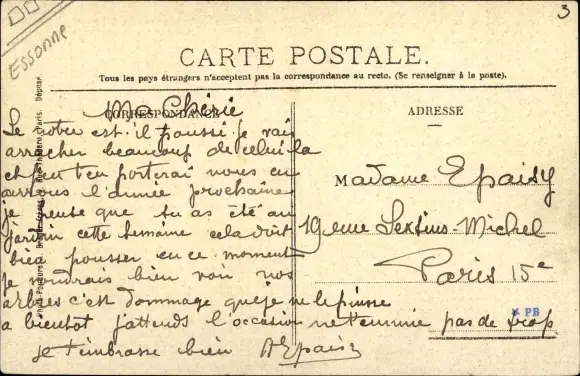 Essonne
3
CARTE POSTALE.
Tous les pays étrangers n'acceptent pas la correspondance au recto. (Se renseigner à la poste).
CORRESPONDANCE
Ma Chérie
Le notre est-il poussé je vais
arracher beaucoup de celui la
et peut t'en porterai nous en
aurons l'année prochaine
je pense que tu as été au
jardin cette semaine cela doit
bien pousser en ce moment
je voudrais bien voir nos
arbres c'est dommage que je ne le puisse
a bientot j'attends l'occasion ne t'ennuie pas de trop
je t'embrasse bien AEpaisy
ADRESSE
Madame Epaisy
19 rue Sextius-Michel
Paris 15e
PB